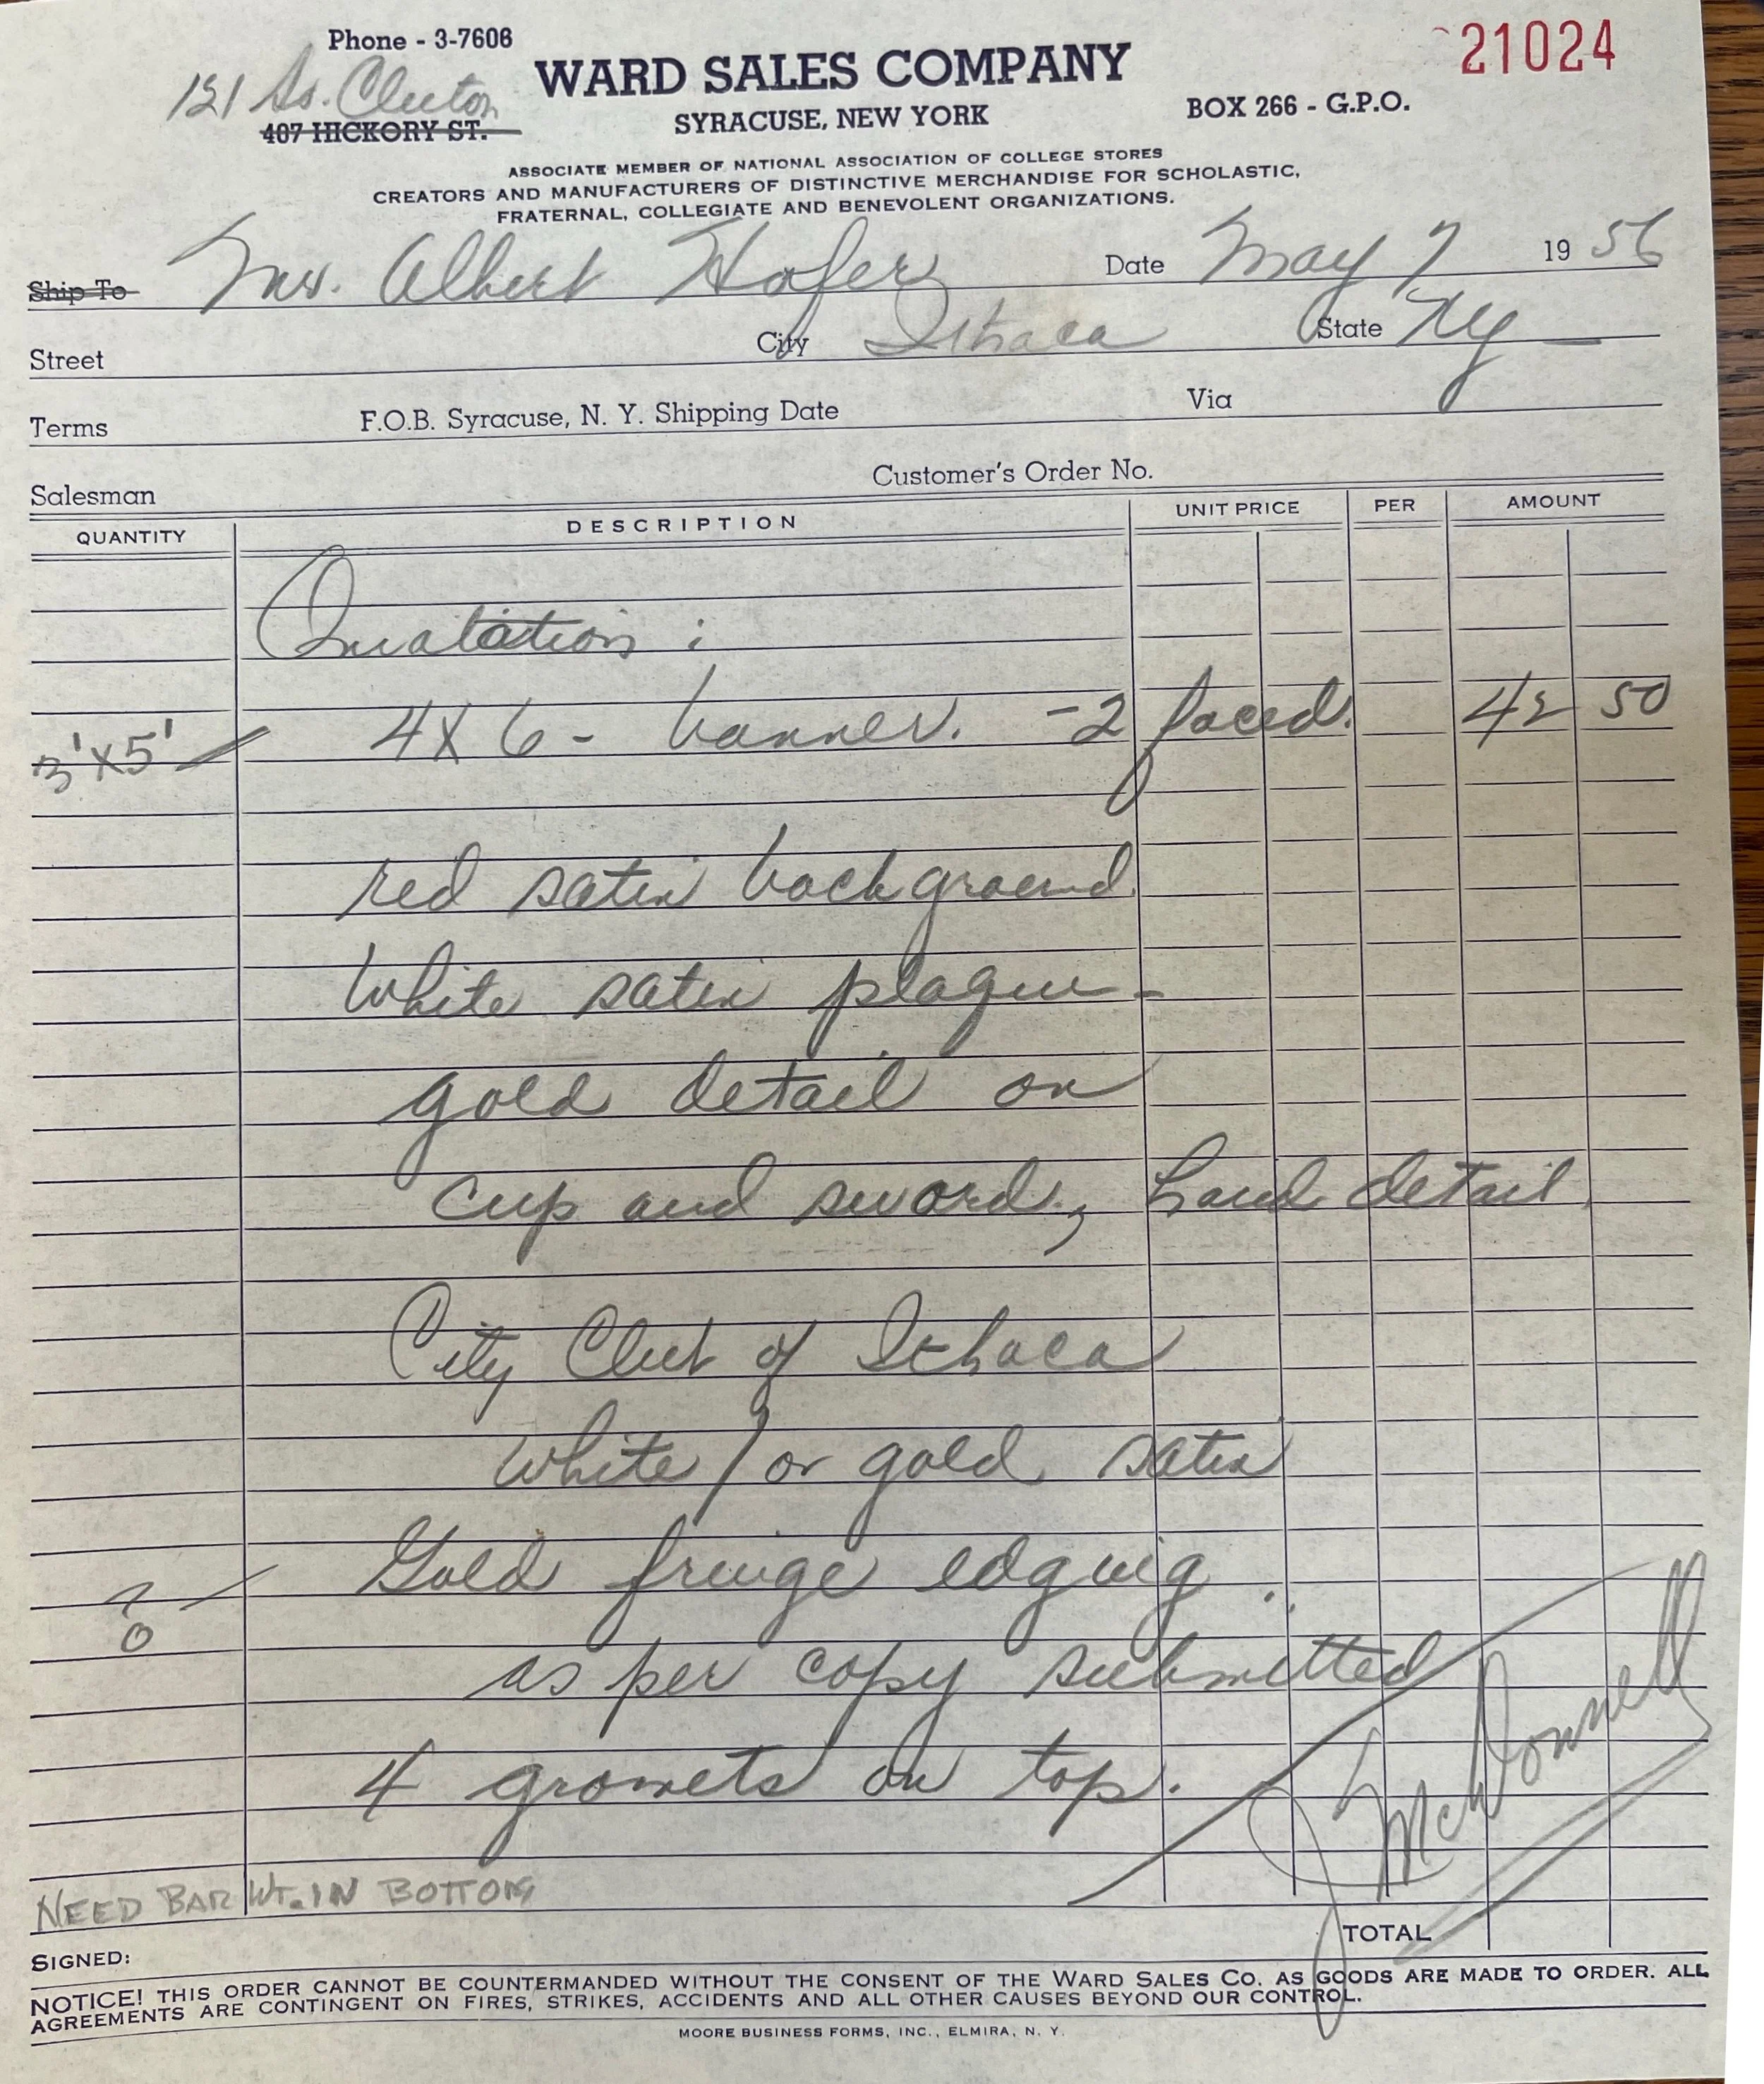 Phone - 3-7606
21024
121 So. Clinton
WARD SALES COMPANY
407 HICKORY ST.
SYRACUSE, NEW YORK
BOX 266 - G.P.O.
ASSOCIATE MEMBER OF NATIONAL ASSOCIATION OF COLLEGE STORES
CREATORS AND MANUFACTURERS OF DISTINCTIVE MERCHANDISE FOR SCHOLASTIC,
FRATERNAL, COLLEGIATE AND BENEVOLENT ORGANIZATIONS.
Ship To Mrs. Albert Hofer Date May 7 19 56
Street City Ithaca State NY
Terms F.O.B. Syracuse, N. Y. Shipping Date Via
Salesman Customer's Order No.
QUANTITY DESCRIPTION UNIT PRICE PER AMOUNT
Quatation :
3'x5' 4x6 - banner. - 2 faced. 42 50
red satin background
White satin plaque -
gold detail on
cup and sword, hand detail.
City Club of Ithaca
white / or gold satin
? Gold fringe edging.
as per copy submitted
4 gromets on top.
J McDonnell
NEED BAR WT. IN BOTTOM
TOTAL
SIGNED:
NOTICE! THIS ORDER CANNOT BE COUNTERMANDED WITHOUT THE CONSENT OF THE WARD SALES CO. AS GOODS ARE MADE TO ORDER. ALL
AGREEMENTS ARE CONTINGENT ON FIRES, STRIKES, ACCIDENTS AND ALL OTHER CAUSES BEYOND OUR CONTROL.
MOORE BUSINESS FORMS, INC., ELMIRA, N. Y.